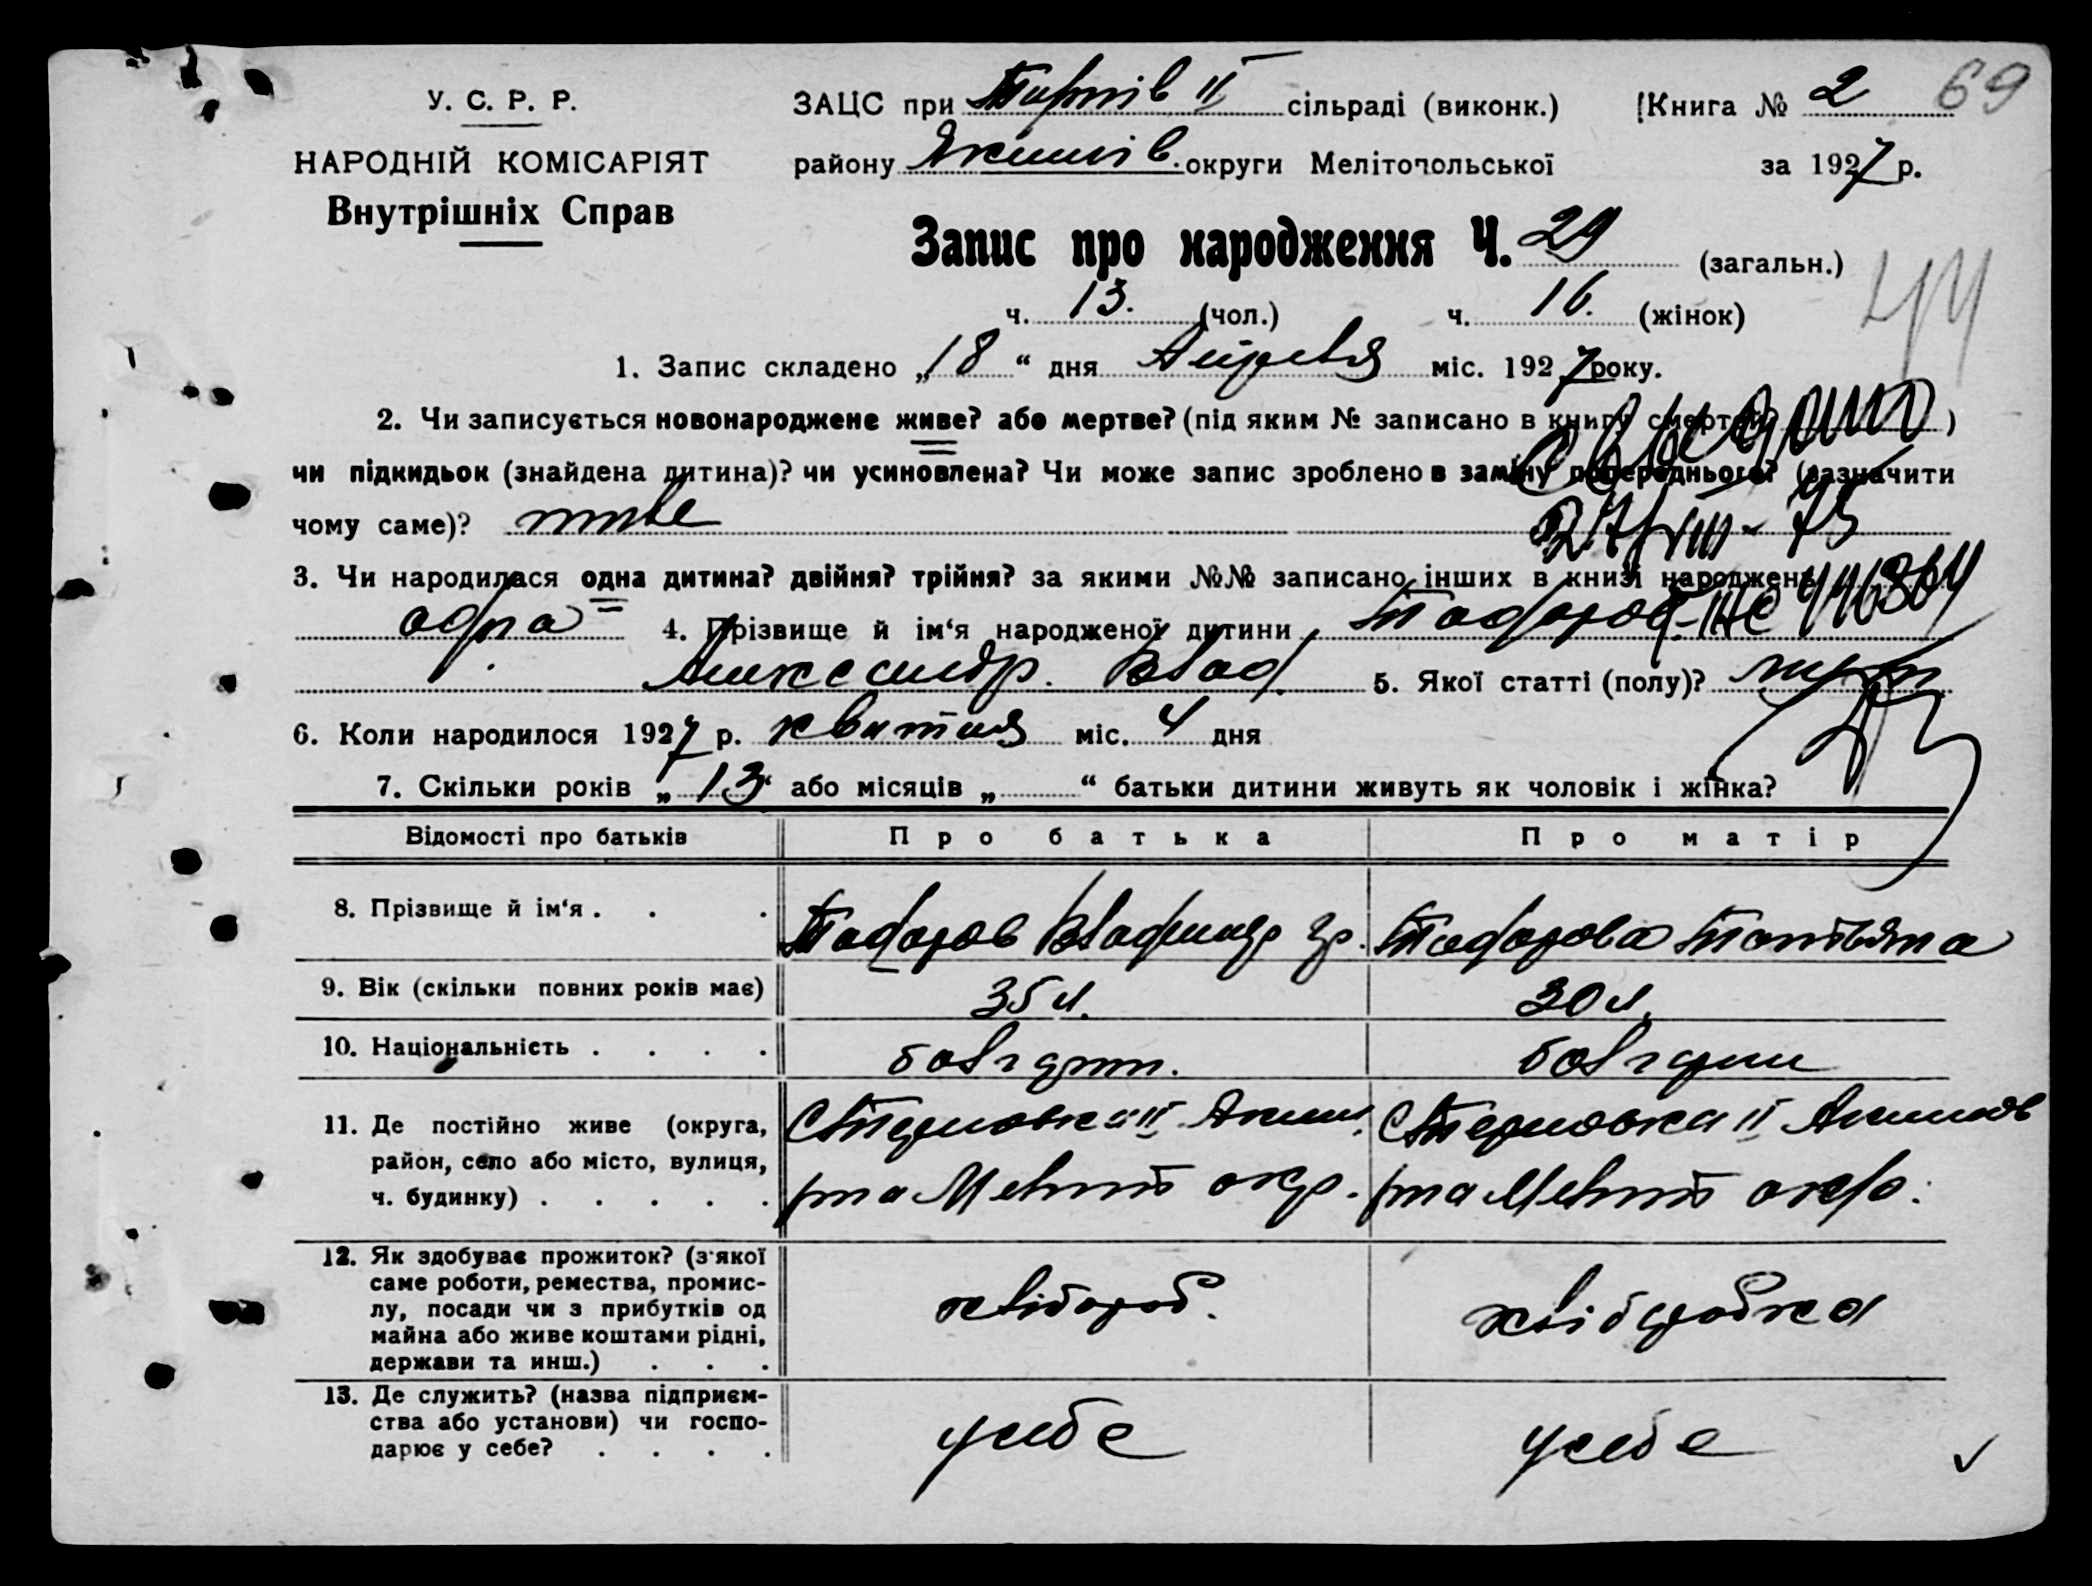 У. С. Р. Р.
НАРОДНІЙ КОМІСАРІЯТ
Внутрішніх Справ
ЗАЦС при II сільраді (виконк.) Книга № 2 69
району Якимів. округи Мелітопольської за 1927 р.
Запис про народження Ч. 29 (загальн.)
44
ч. 13. (чол.) ч. 16. (жінок)
1. Запис складено „18“ дня Апреля міс. 1927 року.
2. Чи записується новонароджене живе? або мертве? (під яким № записано в книгу смертей? )
чи підкидьок (знайдена дитина)? чи усиновлена? Чи може запис зроблено в заміну попереднього? (зазначити
чому саме)? живе
27/VIII-75
3. Чи народилася одна дитина? двійня? трійня? за якими №№ записано інших в книзі народжень
одна 4. Прізвище й ім‘я народженої дитини Тодоров
Александр. Влад. 5. Якої статті (полу)? муж
6. Коли народилося 1927 р. квитня міс. 4 дня
7. Скільки років „13“ або місяців „ “ батьки дитини живуть як чоловік і жінка?
Відомості про батьків Про батька Про матір
8. Прізвище й ім‘я . . . Тодоров Владимир Гр. Тодорова Татьяна
9. Вік (скільки повних років має) 35 л. 30 л.
10. Національність . . . . болгарин. болгарин
11. Де постійно живе (округа, район, село або місто, вулиця, ч. будинку) . . . . .
С Терновка II Аким. р-на Меліт окр.
С Терновка II Акимов р-на Меліт окр.
12. Як здобуває прожиток? (з‘якої саме роботи, ремества, промислу, посади чи з прибутків од майна або живе коштами рідні, держави та инш.) . . .
хлібороб. хліборобка
13. Де служить? (назва підприємства або установи) чи господарює у себе? . . . .
у себе у себе